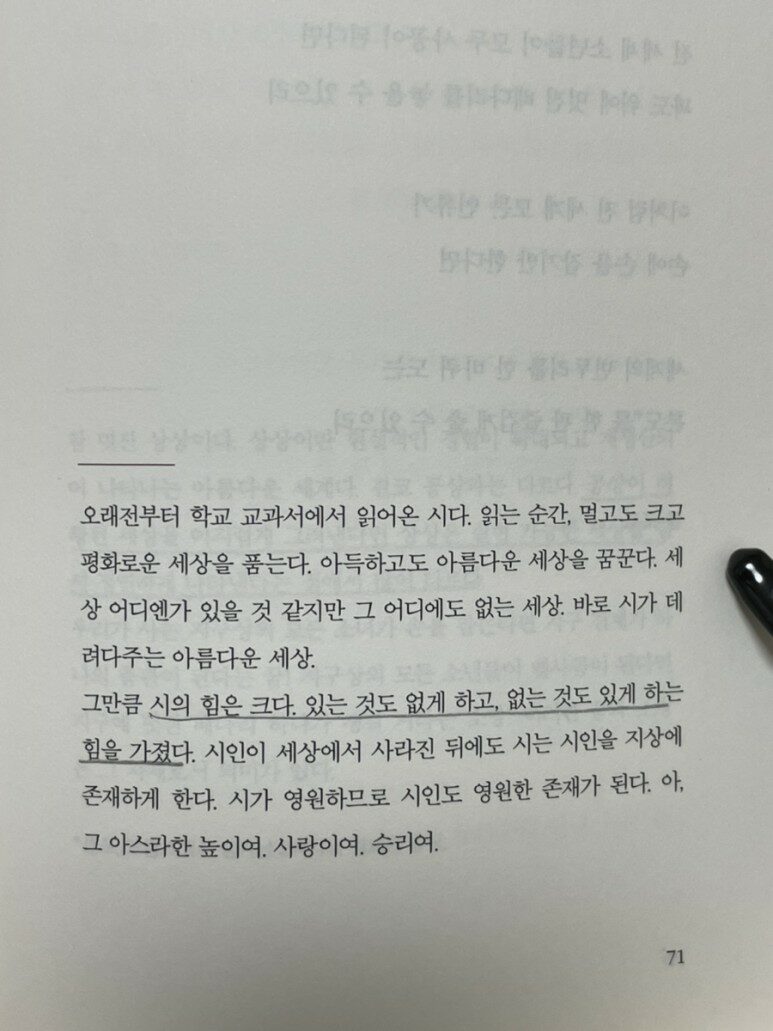 오래전부터 학교 교과서에서 읽어온 시다. 읽는 순간, 멀고도 크고
평화로운 세상을 품는다. 아득하고도 아름다운 세상을 꿈꾼다. 세
상 어디엔가 있을 것 같지만 그 어디에도 없는 세상. 바로 시가 데
려다주는 아름다운 세상.
그만큼 시의 힘은 크다. 있는 것도 없게 하고, 없는 것도 있게 하는
힘을 가졌다. 시인이 세상에서 사라진 뒤에도 시는 시인을 지상에
존재하게 한다. 시가 영원하므로 시인도 영원한 존재가 된다. 아,
그 아스라한 높이여. 사랑이여. 승리여.
71